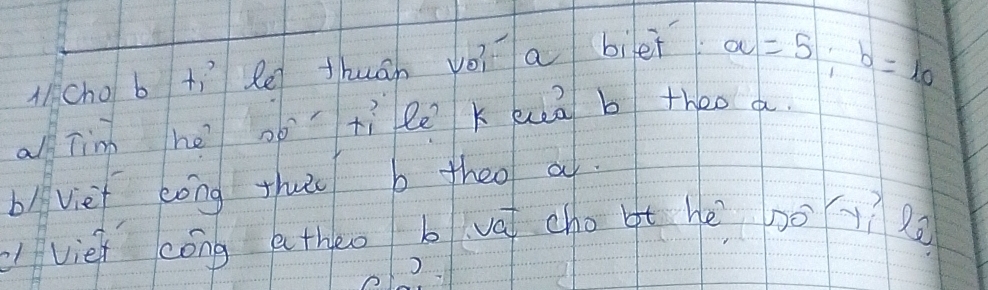 1/ Cho b tỉ lệ thuận với a biết : a = 5 ; b = 10
a/ Tìm hệ số tỉ lệ k của b theo a.
b/ Viết công thức b theo a.
c/ Viết công a theo b và cho bt hệ số tỉ lệ